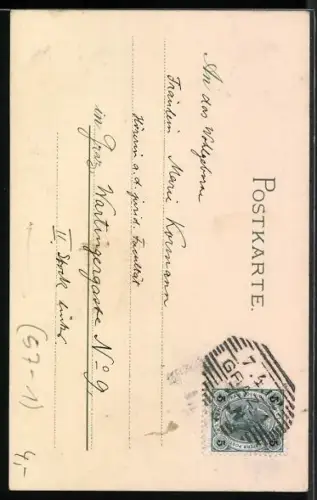 POSTKARTE.
An das Wohlgeborne
Fräulein Marie Kormann
Hörerin a. d. jurid. Facultät
in Graz, Wartingergasse No 9,
II. Stock links
(57-1)
4,-
GRAZ
5 5